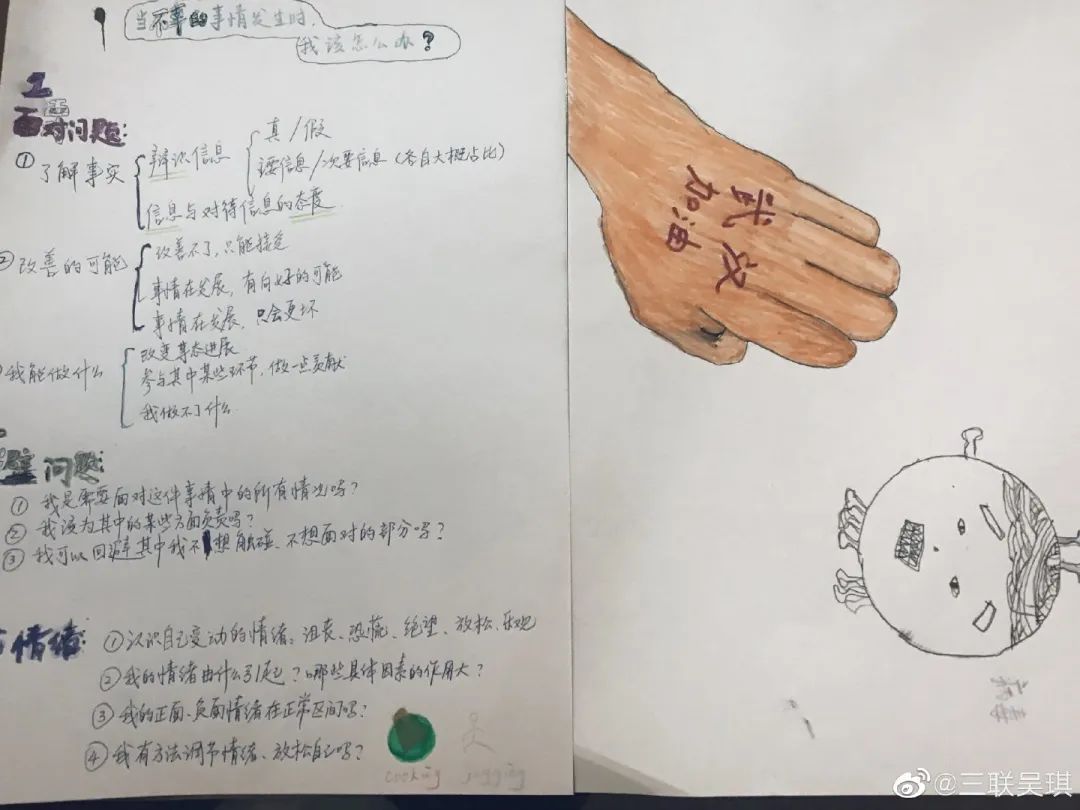 当不幸的事情发生时,
我该怎么办?
1
面对问题:
① 了解事实
辩识信息
真/假
主要信息/次要信息(各自大概占比)
信息与对待信息的态度
② 改善的可能
改善不了,只能接受
事情在发展,有向好的可能
事情在发展,只会更坏
我能做什么
改变事态进展
参与其中某些环节,做一些贡献
我做不了什么
问题:
① 我是需要面对这件事情中的所有情况吗?
② 我该为其中的某些方面负责吗?
③ 我可以回避其中我不想触碰、不想面对的部分吗?
情绪:
① 认识自己变动的情绪:沮丧、恐慌、绝望、放松、乐观
② 我的情绪由什么引起?哪些具体因素的作用大?
③ 我的正面、负面情绪在正常区间吗?
④ 我有方法调节情绪、放松自己吗?
cooking jogging
武汉
加油
病毒
@三联吴琪